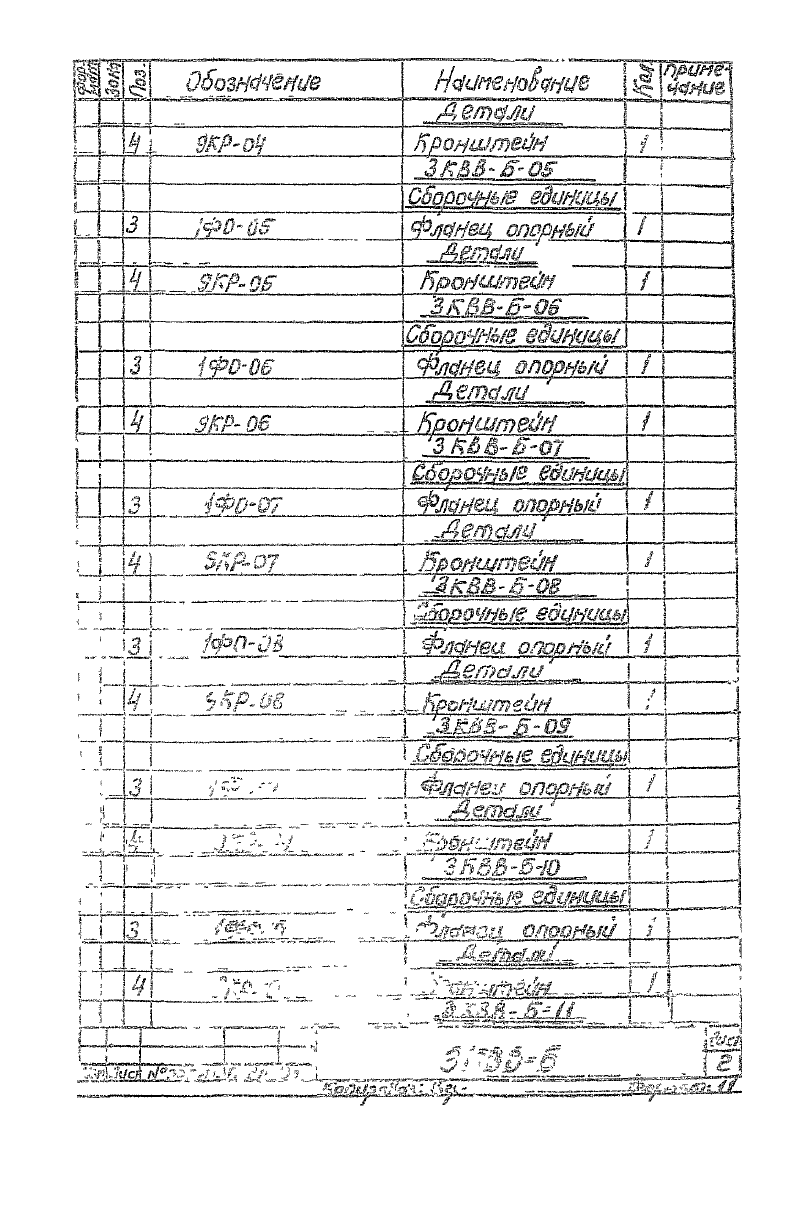 Фор- мат Зона Поз. Обозначение Наименование Кол. Приме- чание
Детали
4 9КР-04 Кронштейн 1
3КВВ-Б-05
Сборочные единицы
3 1ФО-05 Фланец опорный 1
Детали
4 9КР-05 Кронштейн 1
3КВВ-Б-06
Сборочные единицы
3 1ФО-06 Фланец опорный 1
Детали
4 9КР-06 Кронштейн 1
3КВВ-Б-07
Сборочные единицы
3 1ФО-07 Фланец опорный 1
Детали
4 9КР-07 Кронштейн 1
3КВВ-Б-08
Сборочные единицы
3 1ФО-08 Фланец опорный 1
Детали
4 9КР-08 Кронштейн 1
3КВВ-Б-09
Сборочные единицы
3 Фланец опорный 1
Детали
4 Кронштейн 1
3КВВ-Б-10
Сборочные единицы
3 Фланец опорный 1
Детали
4 Кронштейн 1
3КВВ-Б-11
3КВВ-Б
Лист
2
Лист №
Копировал: Формат: 11